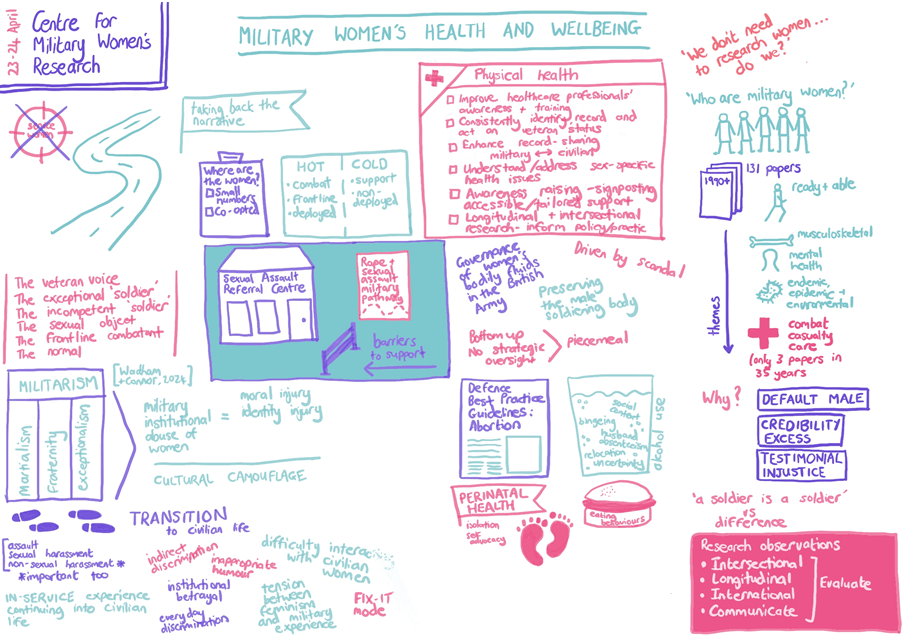 23-24 April
Centre for
Military Women's
Research
MILITARY WOMEN'S HEALTH AND WELLBEING
taking back the
narrative
Where are
the women?
Small
numbers
Co-opted
HOT
• combat
• frontline
• deployed
COLD
• support
• non-
deployed
Physical health
Improve healthcare professionals'
awareness + training
Consistently identify record and
act on veteran status
Enhance record-sharing
military ↔ civilian
Understand/address sex-specific
health issues
Awareness raising - signposting
accessible/tailored support
Longitudinal + intersectional
research-inform policy/practic
'We don't need
to research women...
do we?'
'Who are military women?'
1990+
131 papers
themes
ready + able
musculoskeletal
mental
health
endemic,
epidemic +
environmental
combat
casualty
care
(only 3 papers in
35 years
The veteran voice
The 'exceptional soldier'
The 'incompetent soldier'
The sexual object
The frontline combatant
The normal
Sexual Assault
Referral Centre
Rape +
sexual
assault
military
pathway
barriers
to support
Governance
of women's
bodily fluids
in the British
Army
Driven by scandal
Preserving
the male
soldiering body
Bottom up
No strategic
oversight
piecemeal
MILITARISM
Martialism
Fraternity
exceptionalism
[Wadham
+ Connor, 2024]
military
institutional
abuse of
women
=
moral injury
identity injury
CULTURAL CAMOUFLAGE
Defence
Best Practice
Guidelines:
Abortion
social
contact
bingeing
husband
absenteeism
relocation
uncertainty
alcohol use
Why?
DEFAULT MALE
CREDIBILITY
EXCESS
TESTIMONIAL
INJUSTICE
PERINATAL
HEALTH
isolation
self
advocacy
eating
behaviours
'a soldier is a soldier'
vs
difference
TRANSITION
to civilian life
assault
sexual harassment
non-sexual harassment *
* important too
IN-SERVICE experience
continuing into civilian
life
indirect
discrimination
inappropriate
humour
institutional
betrayal
everyday
discrimination
difficulty interacting
with civilian
women
tension
between
feminism
and military
experience
FIX-IT
mode
Research observations
• Intersectional
• Longitudinal
• International
• Communicate
Evaluate